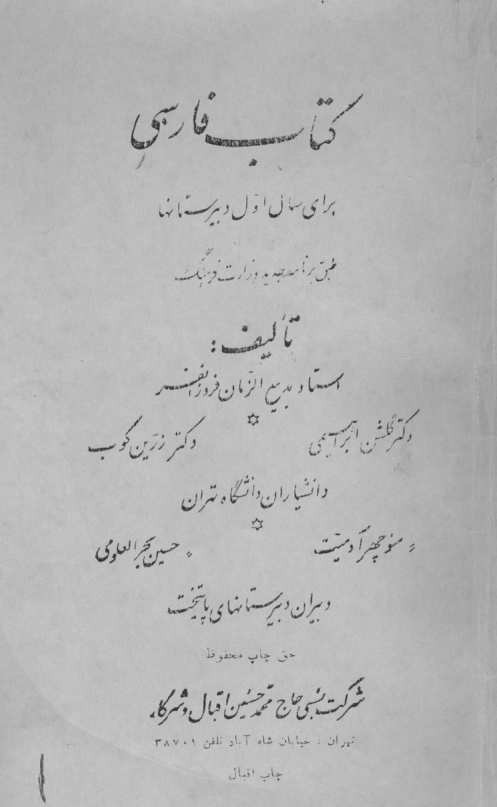 کتاب فارسی
برای سال اوّل دبیرستانها
طبق برنامه جدید وزارت فرهنگ
تألیف:
استاد بدیع الزّمان فروزانفر
دکتر گلشن ابراهیمی دکتر زرّین کوب
دانشیاران دانشگاه تهران
منوچهر آدمیّت حسین بحرالعلومی
دبیران دبیرستانهای پایتخت
حق چاپ محفوظ
شرکت نسبی حاج محمّد حسین اقبال و شرکاء
تهران : خیابان شاه آباد تلفن ۳۸۷۰۱
چاپ اقبال